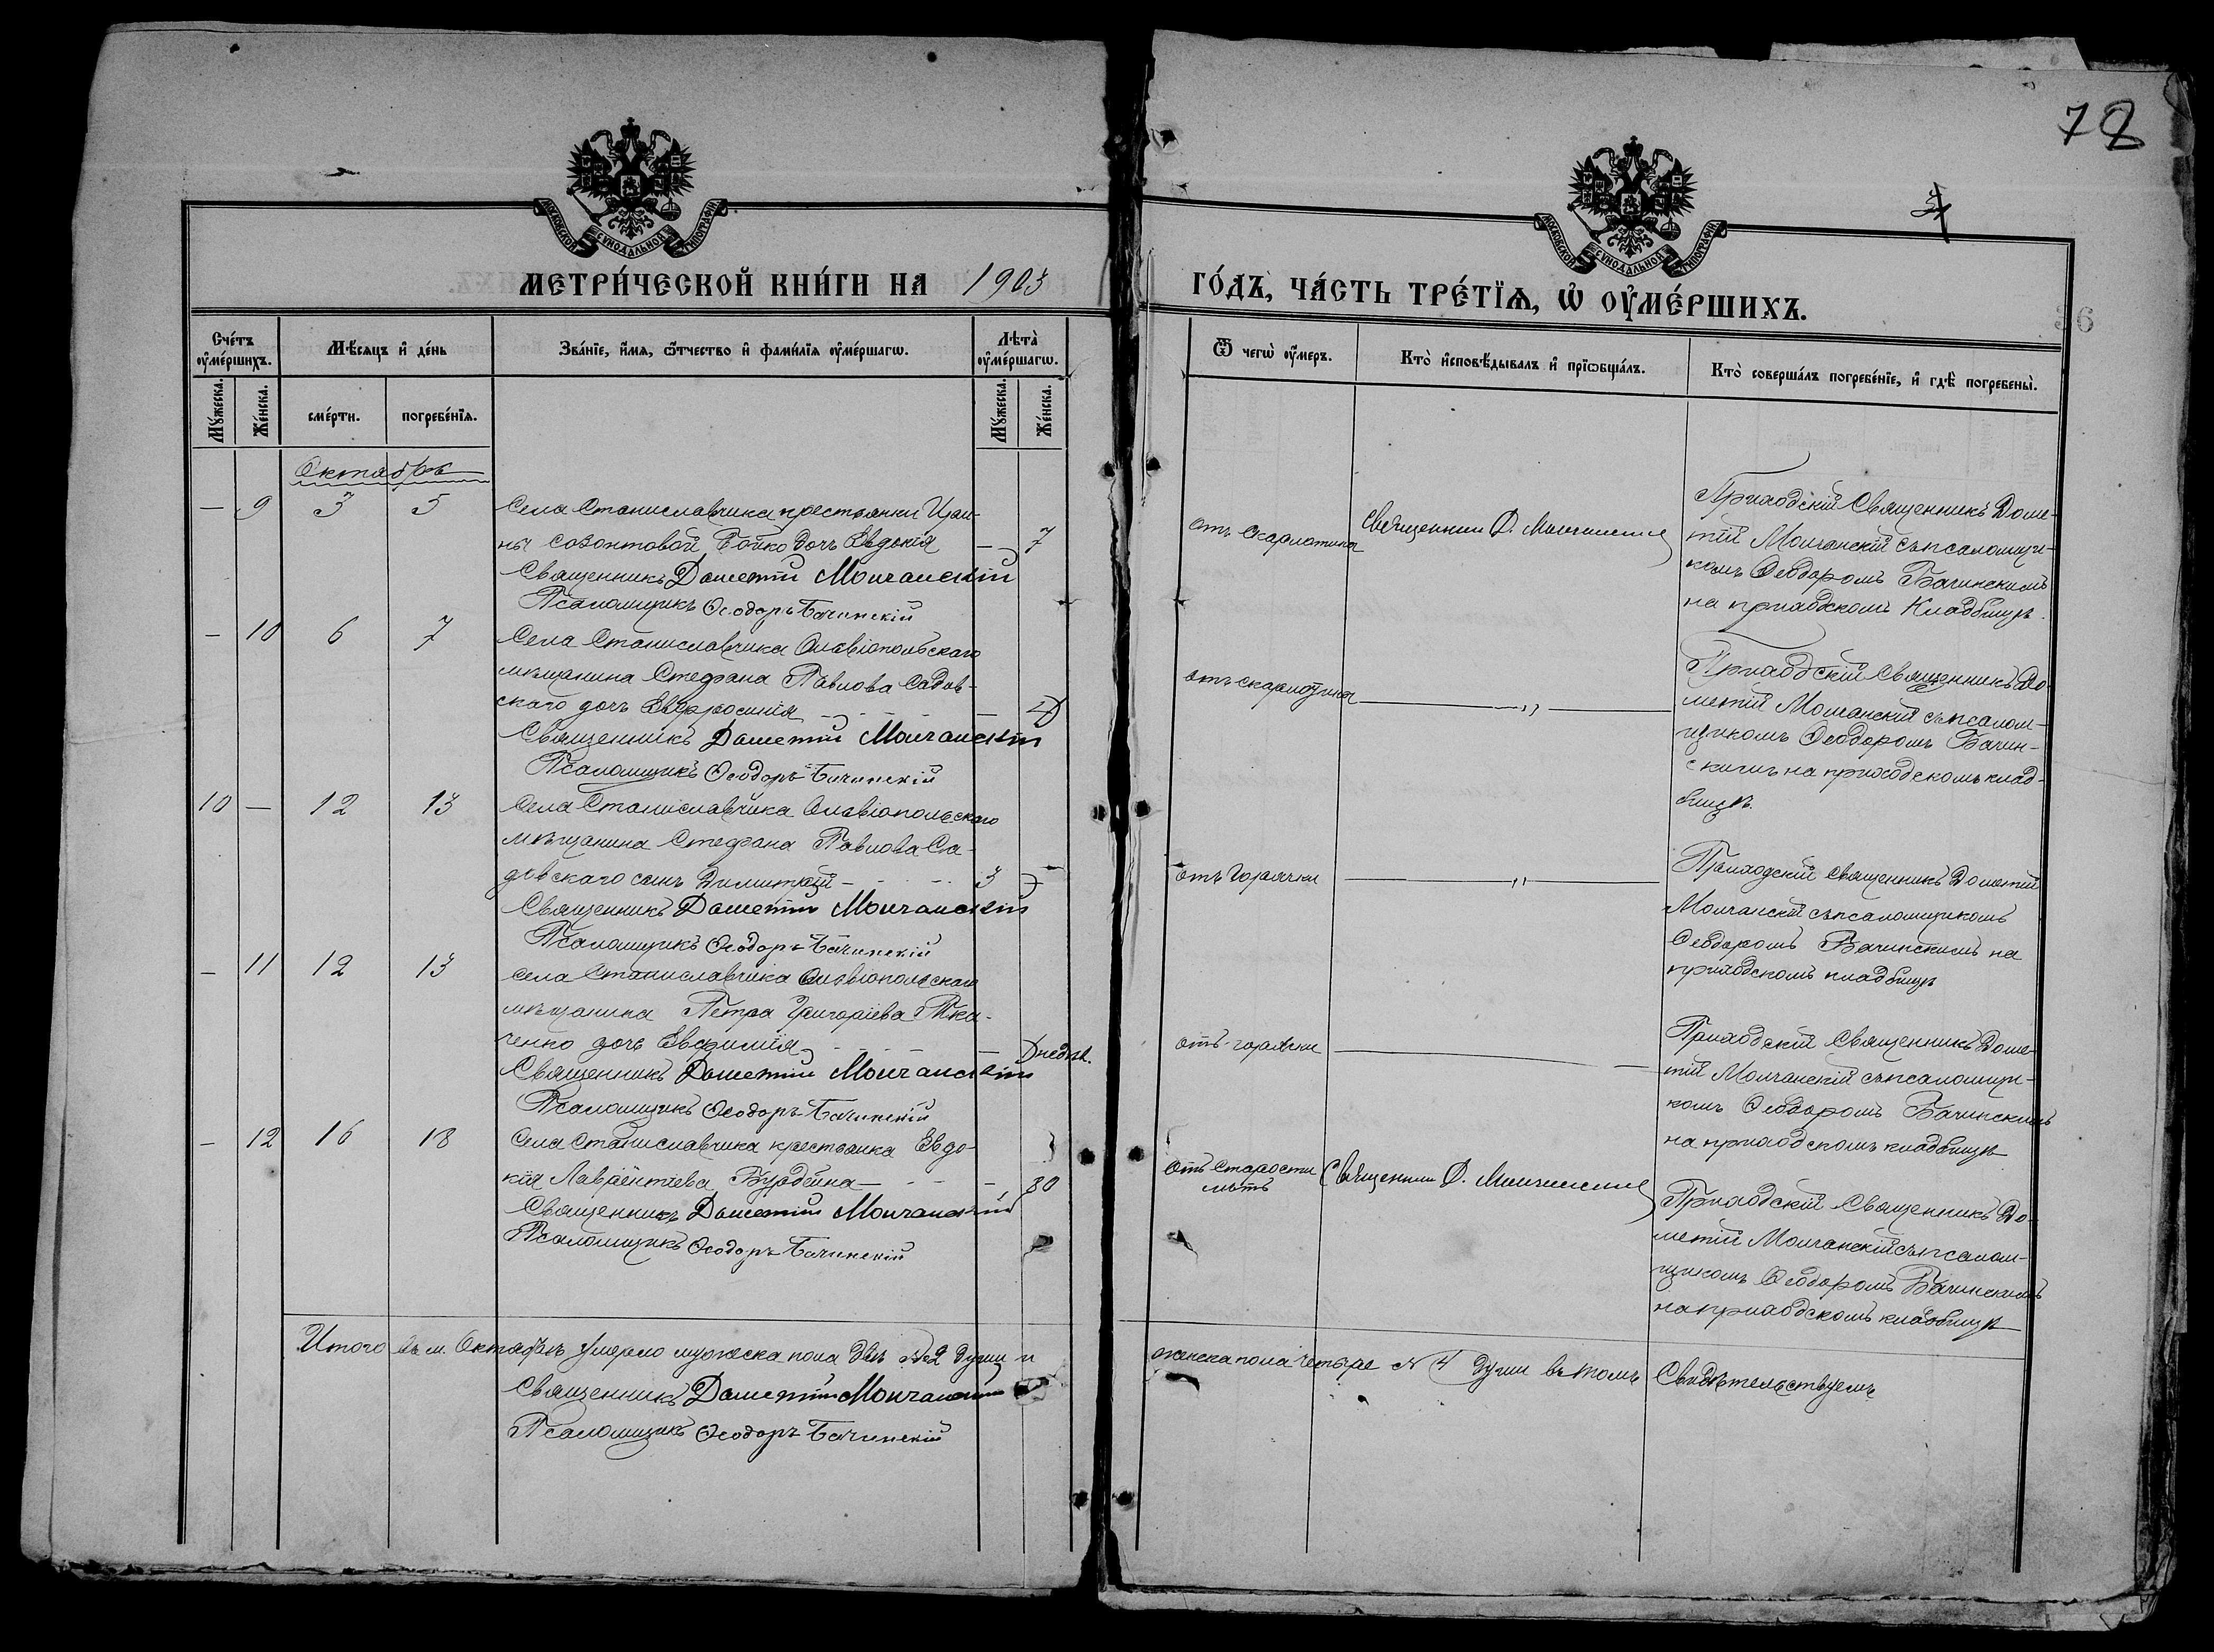 78
4
МОСКОВСКОЙ СѴНОДАЛЬНОЙ ТИПОГРАФІИ
МОСКОВСКОЙ СѴНОДАЛЬНОЙ ТИПОГРАФІИ
МЕТРИ́ЧЕСКОЙ КНИ́ГИ НА 1903
ГО́ДЪ, ЧА́СТЬ ТРЕ́ТЇѦ, Ѡ҆ ОУ҆МЕ́РШИХЪ.
36
Сче́тъ оу҆ме́ршихъ.
Мѣ́сяцъ и҆ де́нь
Зва́нїе, и҆́мя, ѻ҆́тчество и҆ фами́лїя оу҆ме́ршагѡ.
Лѣта̀ оу҆ме́ршагѡ.
Ѿ чегѡ̀ оу҆́меръ.
Кто̀ и҆сповѣ́дывалъ и҆ прїѡбща́лъ.
Кто̀ соверша́лъ погребе́нїе, и҆ гдѣ̀ погребены̀.
Мꙋ́жеска.
Же́нска.
сме́рти.
погребе́нїя.
Мꙋ́жеска.
Же́нска.
Октябрь
— 9 3 5 Села Станиславчика крестьянки Ири-
ны Созонтовой Бойко дочь Евдокія — 7
Священникъ Дометій Молчанскій
Псаломщикъ Ѳеодоръ Бачинскій
отъ скарлатины
Священникъ Д. Молчанскій
Приходскій Священникъ Доме-
тій Молчанскій съ псаломщи-
комъ Ѳеодоромъ Бачинскимъ
на приходскомъ Кладбищѣ.
— 10 6 7 Села Станиславчика Ольвіопольскаго
мѣщанина Стефана Павлова Садов-
скаго дочь Евфросинія —
Священникъ Дометій Молчанскій
Псаломщикъ Ѳеодоръ Бачинскій
отъ скарлатины
— „ —
Приходскій Священникъ До-
метій Молчанскій съ псалом-
щикомъ Ѳеодоромъ Бачин-
скимъ на приходскомъ клад-
бищѣ.
10 — 12 13 Села Станиславчика Ольвіопольскаго
мѣщанина Стефана Павлова Са-
довскаго сынъ Димитрій — 3 —
Священникъ Дометій Молчанскій
Псаломщикъ Ѳеодоръ Бачинскій
отъ Горячки
— „ —
Приходскій Священникъ Дометій
Молчанскій съ псаломщикомъ
Ѳеодоромъ Бачинскимъ на
приходскомъ кладбищѣ
— 11 12 13 Села Станиславчика Ольвіопольскаго
мѣщанина Петра Григоріева Тка-
ченко дочь Евфимія —
Священникъ Дометій Молчанскій
Псаломщикъ Ѳеодоръ Бачинскій
отъ горячки
—
Приходскій Священникъ Доме-
тій Молчанскій съ псаломщи-
комъ Ѳеодоромъ Бачинскимъ
на приходскомъ кладбищѣ
— 12 16 18 Села Станиславчика крестьянка Евдо-
кія Лаврентіева — 80
Священникъ Дометій Молчанскій
Псаломщикъ Ѳеодоръ Бачинскій
отъ Старости
лѣтъ
Священникъ Д. Молчанскій
Приходскій Священникъ До-
метій Молчанскій съ псалом-
щикомъ Ѳеодоромъ Бачинскимъ
на приходскомъ кладбищѣ
Итого въ м. Октябрѣ умерло мужеска пола двѣ № 2 души и женска пола четыре № 4 души въ томъ Свидѣтельствуемъ
Священникъ Дометій Молчанскій
Псаломщикъ Ѳеодоръ Бачинскій